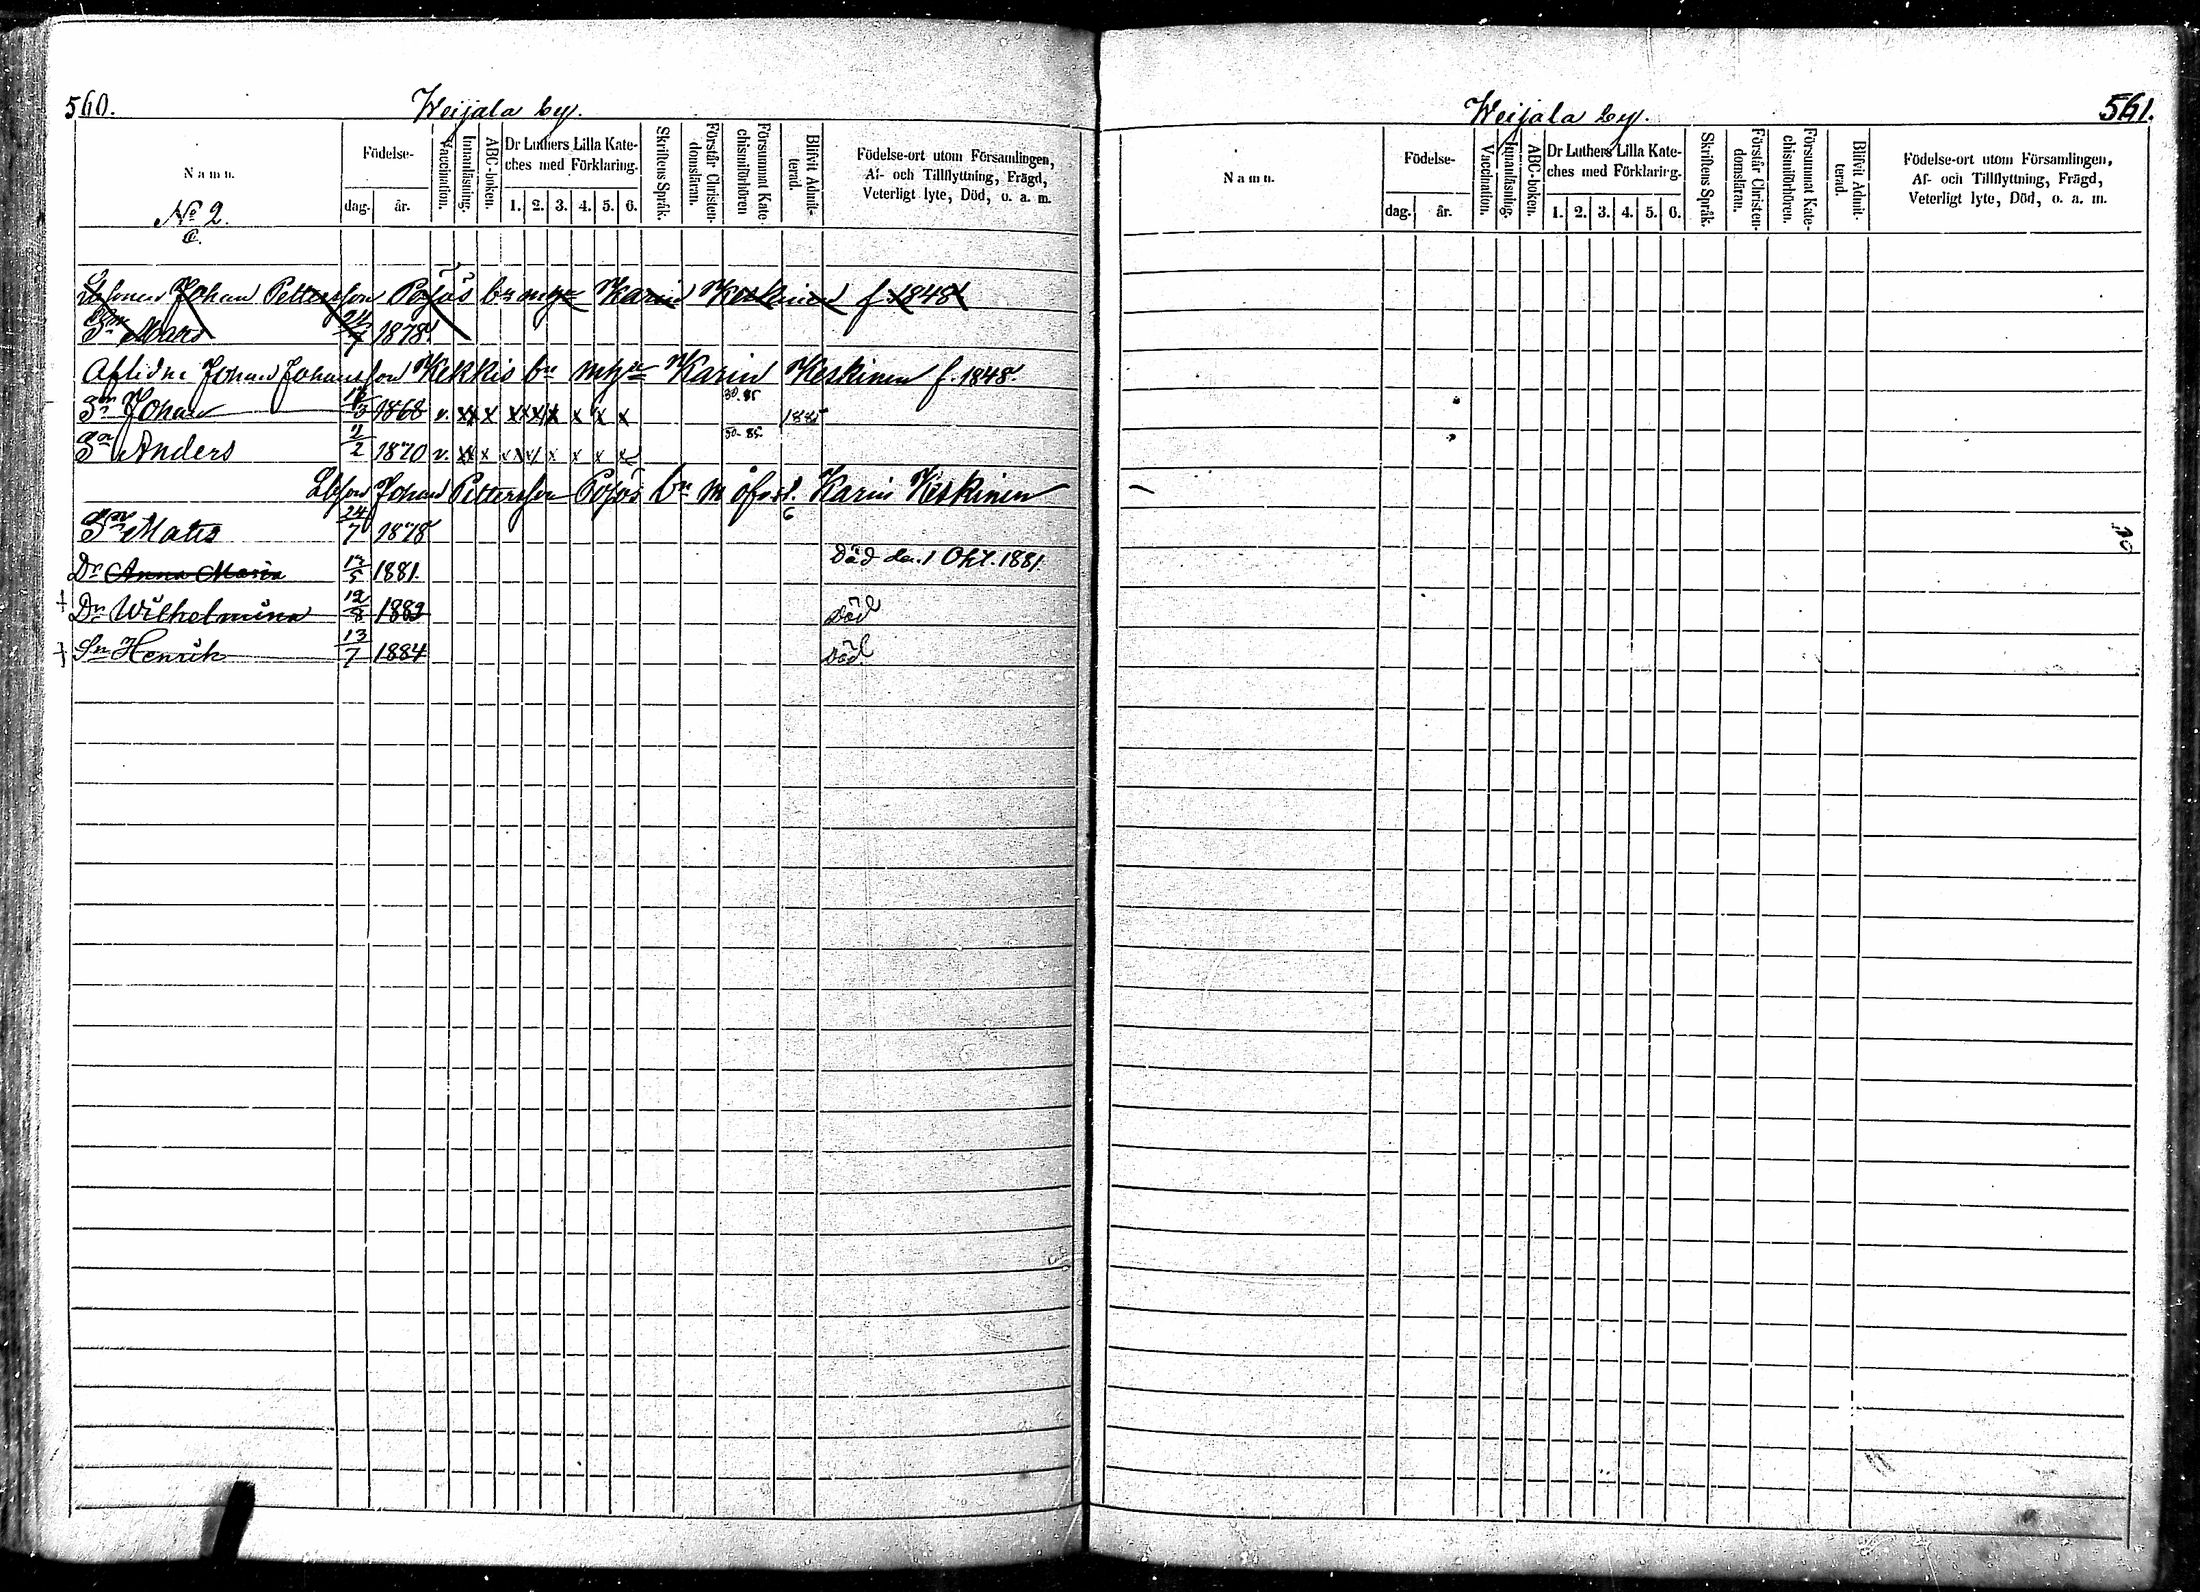 560.
Weijala by.
Namn.
Födelse-
dag.
år.
Vaccination.
Innanläsning.
ABC-boken.
Dr Luthers Lilla Kate-
ches med Förklaring.
1. 2. 3. 4. 5. 6.
Skriftens Språk.
Förstår Christen-
domsläran.
Försummat Kate-
chismiförhören
Blifvit Admit-
terad.
Födelse-ort utom Församlingen,
Af- och Tillflyttning, Frägd,
Veterligt lyte, Död, o. a. m.
No 2.
Johan Pettersson Pojös bn Karin Keskinen f 1848
Sn Mats 24/7 1878
Aflidne Johan Johansson Kekkis bn Karin Keskinen f. 1848.
30. 85
Sn Johan 1868 v. xx x x x x x x x x 1885
30. 85.
Sn Anders 2/2 1870 v. xx x x x x x x x
Johan Pettersson Pojös bn m Karin Keskinen
Sn Mats 24/7 1878
Dr Anna Maria 1881. Död den 1 Okt. 1881.
Dr Wilhelmina 12/8 1882 Död
Sn Henrik 13/7 1884 Död
561.
Weijala by.
Namn.
Födelse-
dag.
år.
Vaccination.
Innanläsning.
ABC-boken.
Dr Luthers Lilla Kate-
ches med Förklaring.
1. 2. 3. 4. 5. 6.
Skriftens Språk.
Förstår Christen-
domsläran.
Försummat Kate-
chismiförhören.
Blifvit Admit-
terad.
Födelse-ort utom Församlingen,
Af- och Tillflyttning, Frägd,
Veterligt lyte, Död, o. a. m.